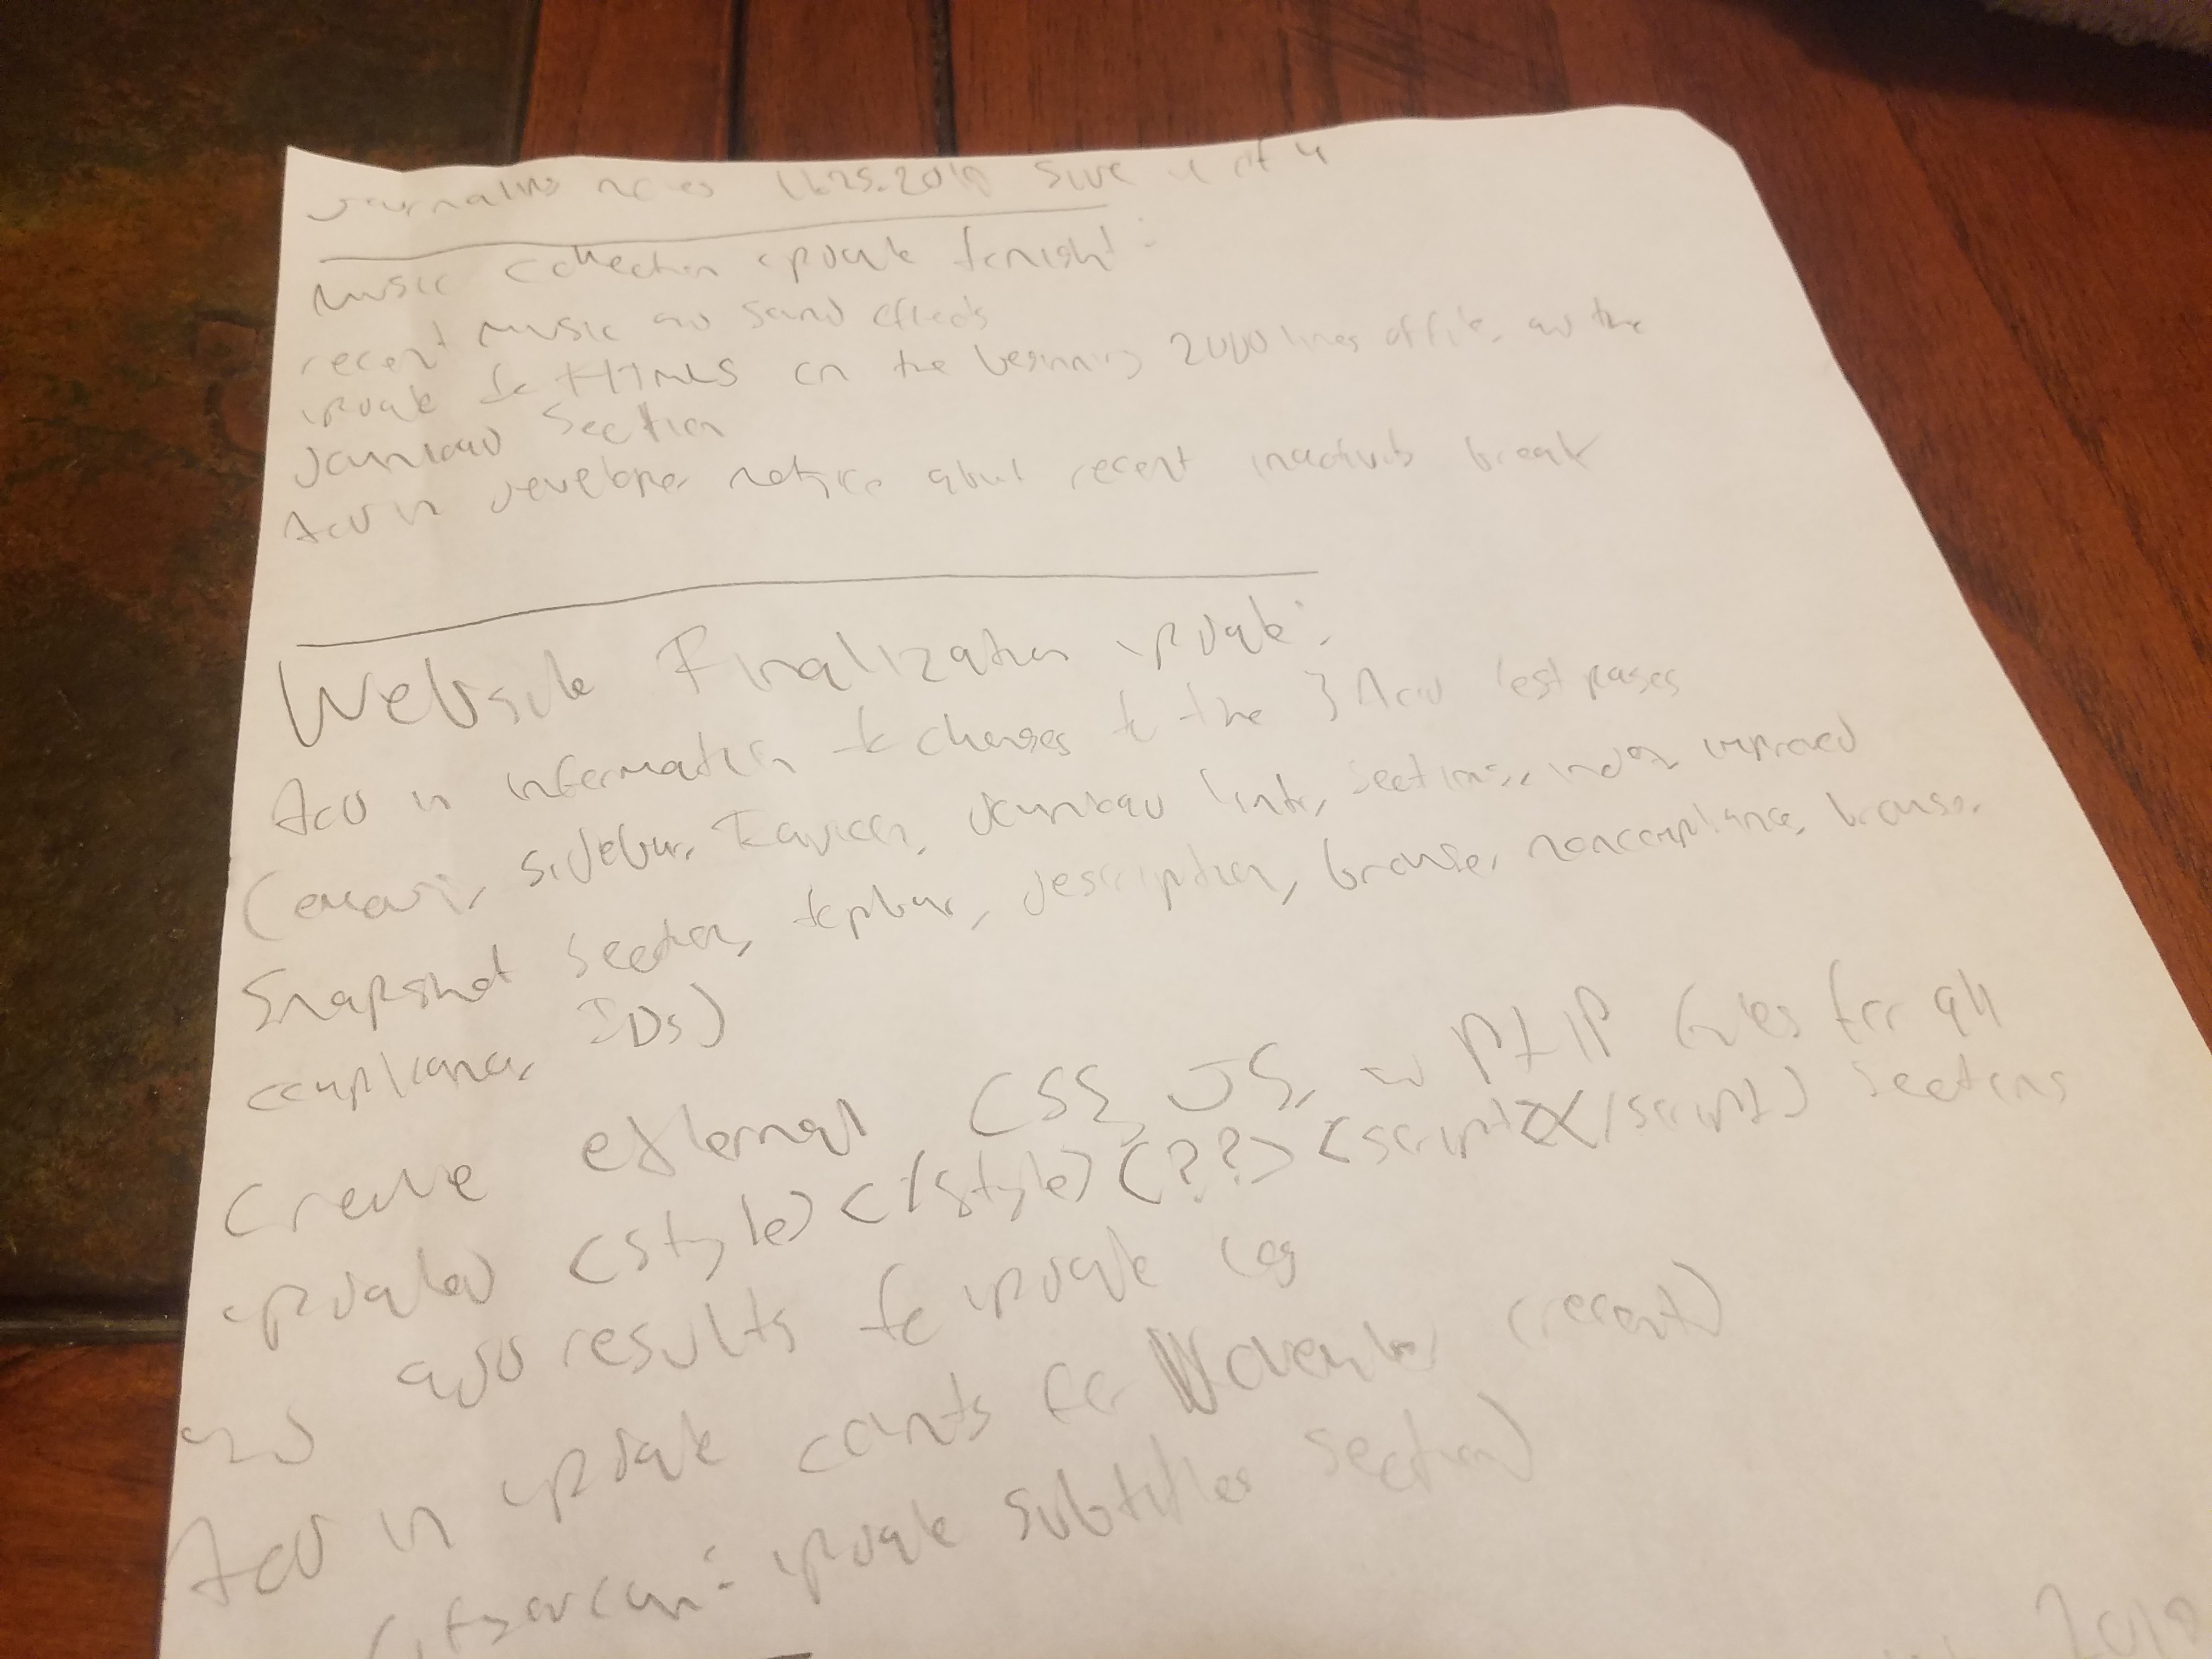 Journaling notes 11.25.2018 Side 4 of 4
Music collection update tonight:
recent music and sound effects
update to HTML5 on the beginning 2000 lines of file, and the
download section
Add in developer notice about recent inactivity break
Website Finalization update:
Add in information to changes to the 3 test pages
sidebar, Favicon, download links, sections, index improved
Snapshot section, topbar, description, browse, noncompliance, browser
compliance, IDs)
Create external CSS, JS, and PHP files for all
updated <style></style> <??> <script></script> sections
and add results to update log
Add in update counts for November (recent)
update subtitles section)
2018